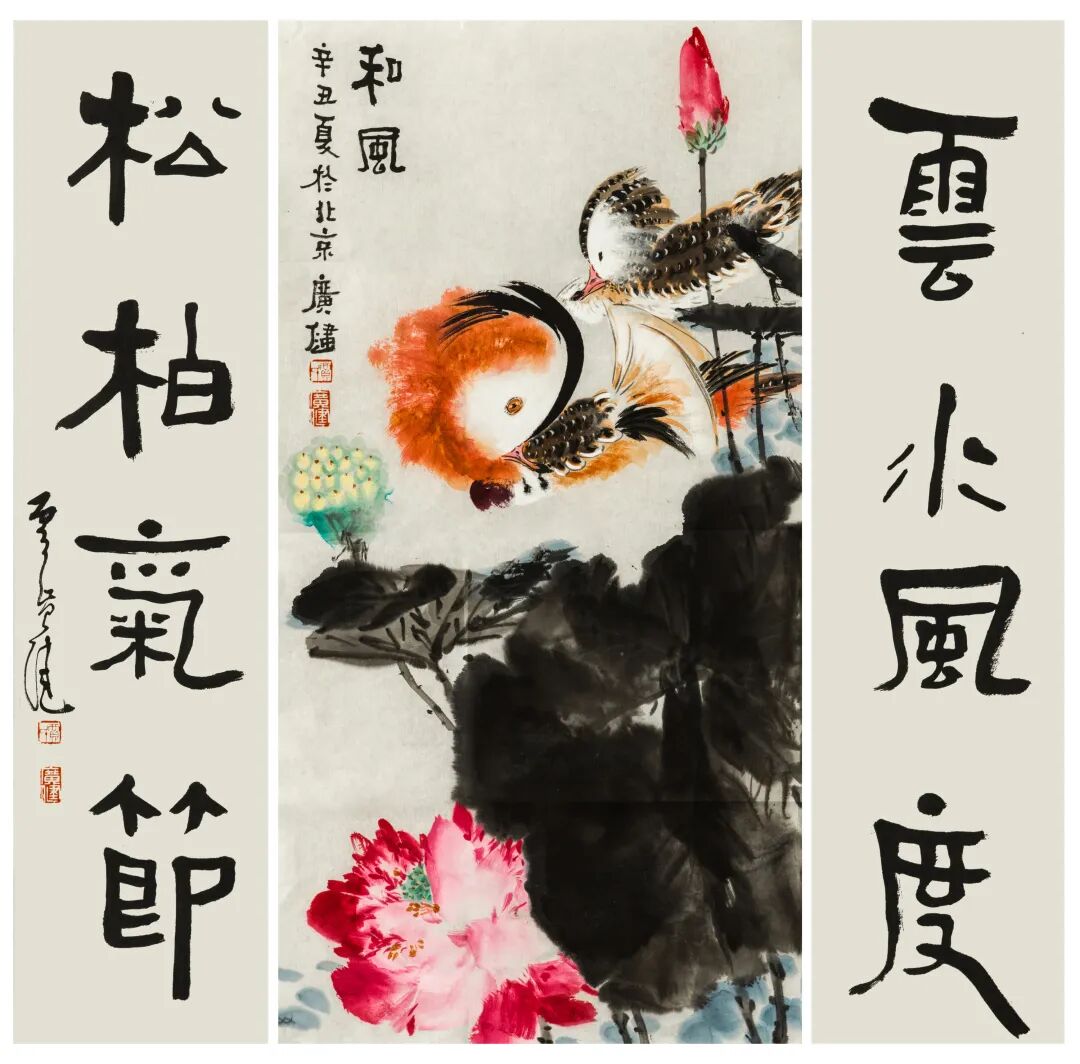 雲水風度
和風
辛丑夏於北京廣健
廣健
松柏氣節
廣健